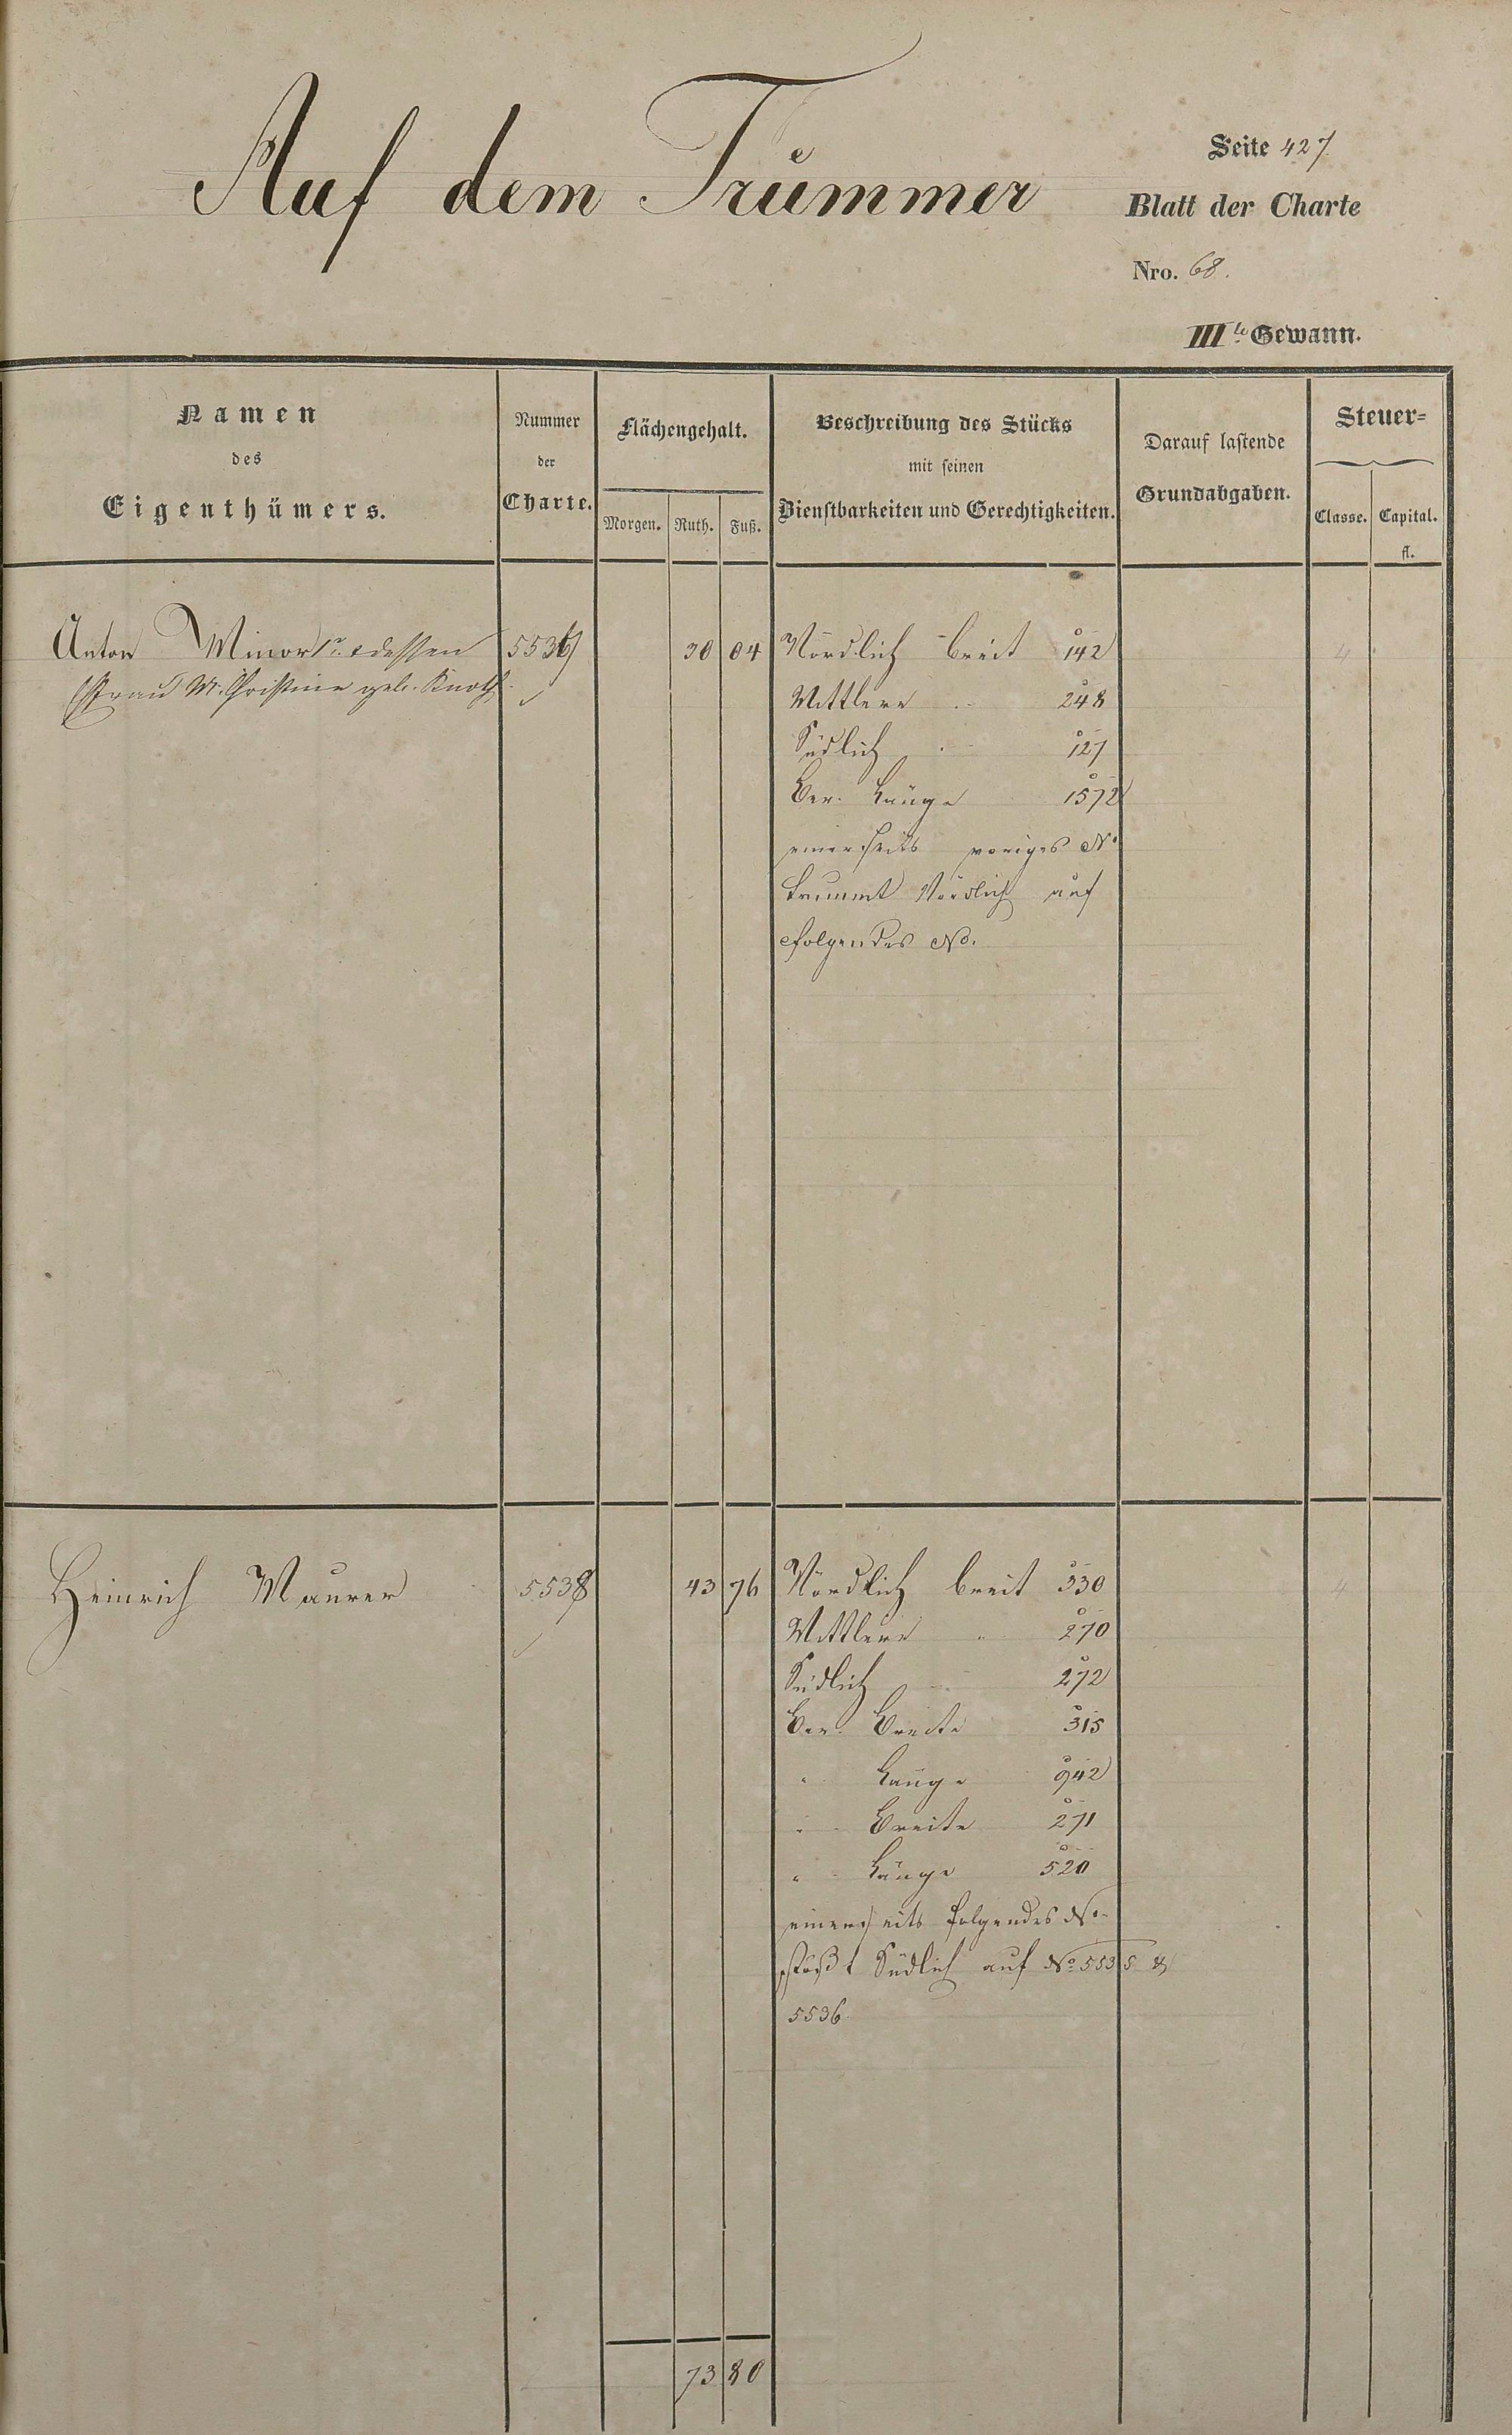 Auf dem Trümmer
Seite 427
Blatt der Charte
Nro. 68.
IIIte Gewann.
Namen
des
Eigenthümers.
Nummer
der
Charte.
Flächengehalt.
Morgen. Ruth. Fuß.
Beschreibung des Stücks
mit seinen
Dienstbarkeiten und Gerechtigkeiten.
Darauf lastende
Grundabgaben.
Steuer-
Classe. Capital.
fl.
Anton Minor 1r. dessen 5537 30 04 Nördlich breit 142 4
Frau M. Christine geb. Knoth
Mittlere " 248
Südlich " 127
Ber. Länge 1572
einerseits voriges No
kommt Nördlich auf
folgendes No.
Heinrich Maurer 5538 43 76 Nördlich breit 330 4
Mittlere " 270
Südlich 272
Ber. Breite 315
" Länge 942
" Breite 271
" Länge 520
einerseits folgendes No.
stößt Südlich auf No 5535 &
5536
73 80